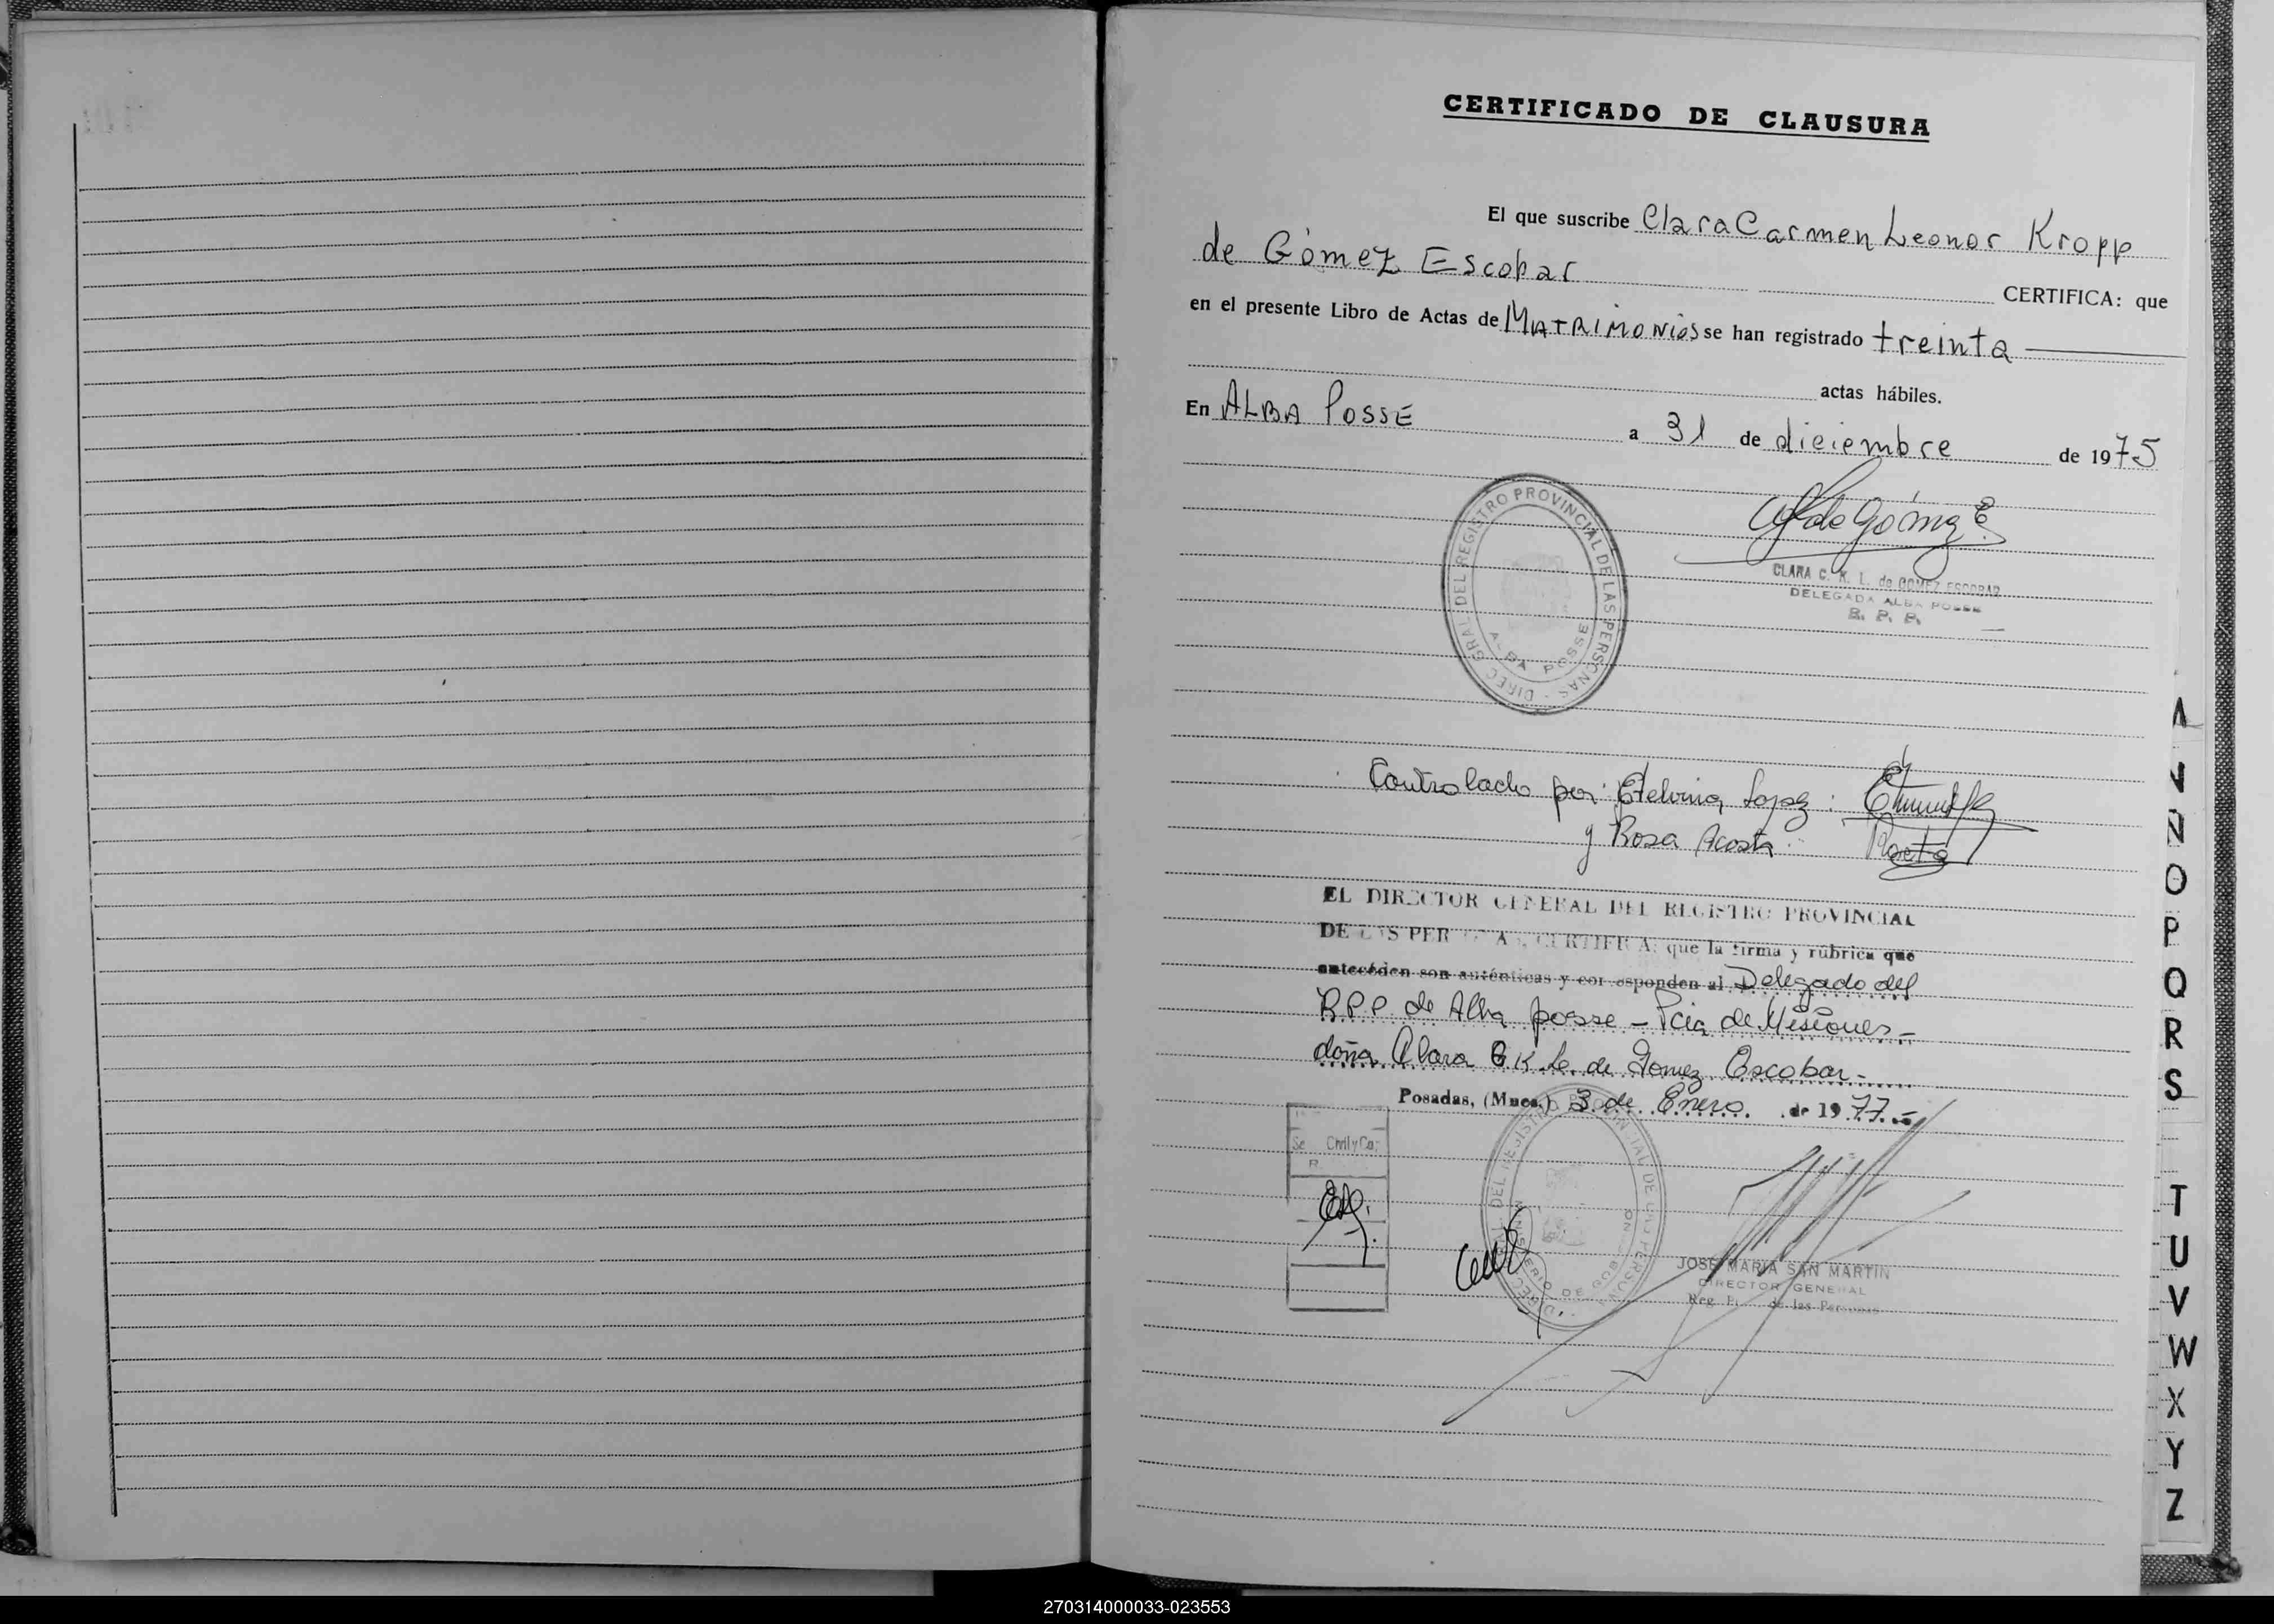 CERTIFICADO DE CLAUSURA
El que suscribe Clara Carmen Leonor Kropp
de Gómez Escobar CERTIFICA: que
en el presente Libro de Actas de MATRIMONIOS se han registrado treinta
actas hábiles.
En ALBA POSSE a 31 de diciembre de 1975
DIREC. GRAL. DEL REGISTRO PROVINCIAL DE LAS PERSONAS
ALBA POSSE
CLARA C. K. L. de GOMEZ ESCOBAR
DELEGADA ALBA POSSE
R. P. P.
Controlado por: Etelvina Lopez:
y Rosa Acosta
EL DIRECTOR GENERAL DEL REGISTRO PROVINCIAL
DE LAS PERSONAS, CERTIFICA: que la firma y rúbrica que
anteceden son auténticas y corresponden al Delegado del
R.P.P. de Alba posse - Pcia de Misiones -
doña Clara C. K. L. de Gomez Escobar -
Posadas, (Mnes.) 3 de Enero de 1977 -
JOSE MARIA SAN MARTIN
DIRECTOR GENERAL
Reg. de las Personas
A
N
Ñ
O
P
Q
R
S
T
U
V
W
X
Y
Z
270314000033-023553